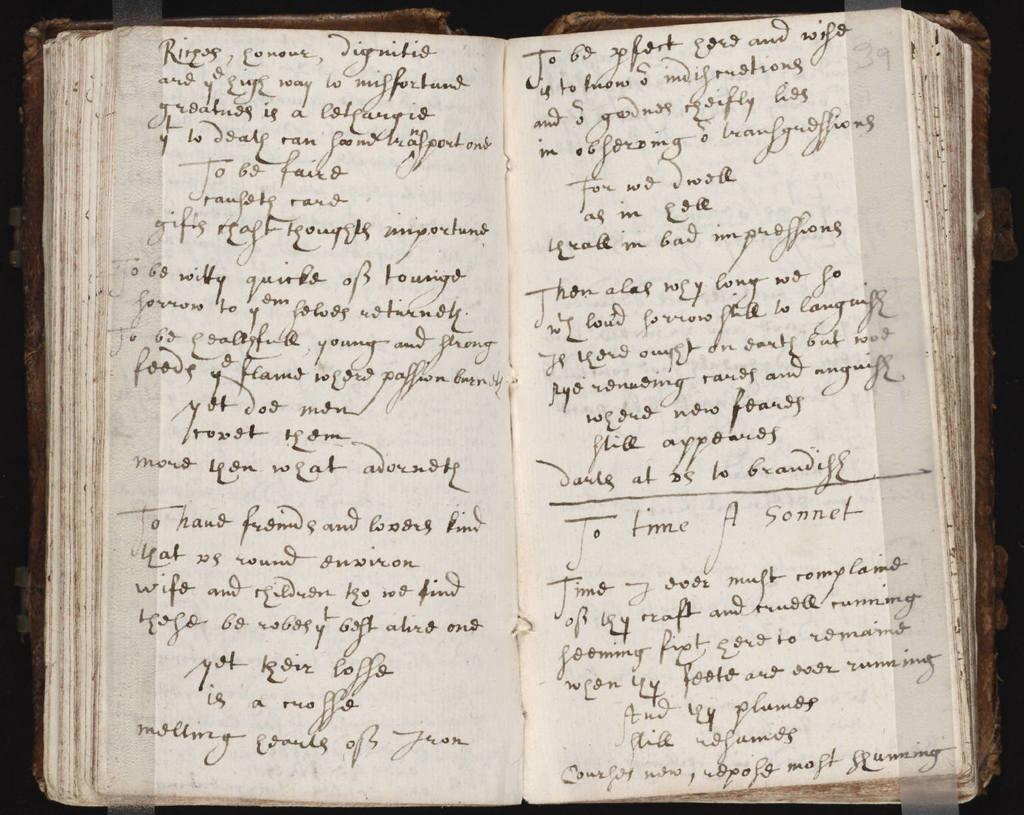 Riches, honour, dignitie
are yͤ high way to misfortune
greatnes is a lethargie
yͭ to death can soone transport one
To be faire
causeth care
gifts chast thoughts importune
To be witty quicke of tounge
sorrow to yͤᵐ selves returneth.
To be healthfull, young and strong
feeds yͤ flame where passion burneth
yet doe men
covet them
more then what adorneth
To have freinds and lovers kind
that us round environ
wife and children tho we find
these be robes yͭ best atire one
yet their losse
is a crosse
melting hearts of Iron
39
To be pfect here and wise
is to know oͬ indiscretions
and oͬ goodnes cheifly lies
in observing oͬ transgressions
For we dwell
as in hell
thrall in bad impressions
Then alas why long we so
wͭʰ loud sorrow still to languish
Is there ought on earth but woe
Aye renueing cares and anguish
where new feares
still appeares
darts at us to brandish
To time A Sonnet
Time I ever must complaine
of thy craft and cruell cunning
seeming fixt here to remaine
when thy feete are ever running
And thy plumes
still resumes
Courses new, repose most shunning